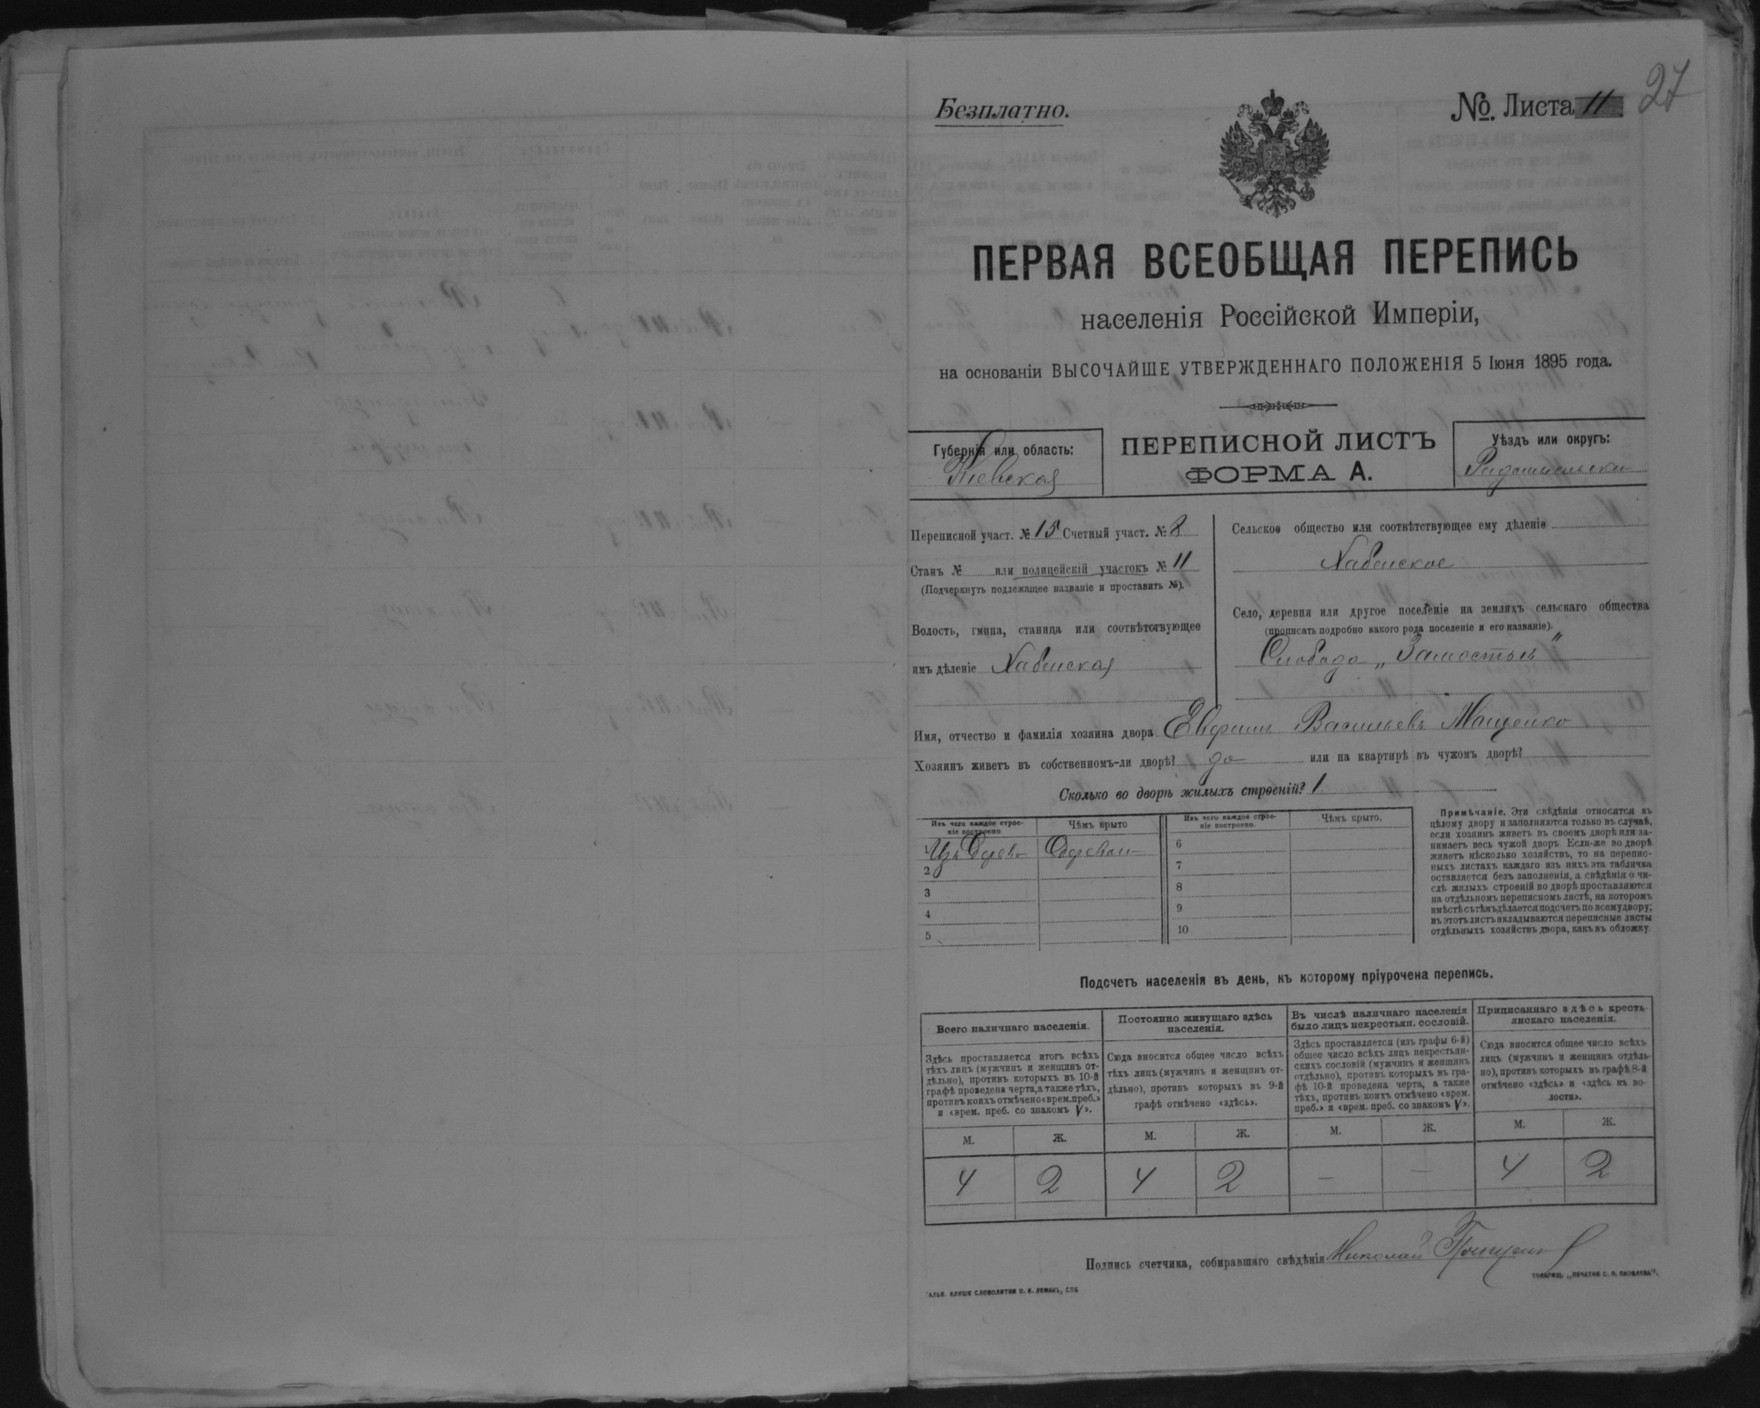 27
Безплатно.
№. Листа 11
ПЕРВАЯ ВСЕОБЩАЯ ПЕРЕПИСЬ
населенія Россійской Имперіи,
на основаніи ВЫСОЧАЙШЕ УТВЕРЖДЕННАГО ПОЛОЖЕНІЯ 5 Іюня 1895 года.
Губернія или область:
Кіевская
ПЕРЕПИСНОЙ ЛИСТЪ
ФОРМА А.
Уѣздъ или округъ:
Переписной участ. № 15 Счетный участ. № 8
Станъ № или полицейскій участокъ № 11
(Подчеркнуть подлежащее названіе и проставить №).
Волость, гмина, станица или соотвѣтствующее
имъ дѣленіе Хабенская
Сельское общество или соотвѣтствующее ему дѣленіе
Хабенское
Село, деревня или другое поселеніе на земляхъ сельскаго общества
(прописать подробно какого рода поселеніе и его названіе).
Слобода „Замостье"
Имя, отчество и фамилія хозяина двора Васильевъ Мащенко
Хозяинъ живетъ въ собственномъ-ли дворѣ? да или на квартирѣ въ чужомъ дворѣ?
Сколько во дворѣ жилыхъ строеній? 1
Изъ чего каждое строе-
ніе построено
Чѣмъ крыто
Изъ чего каждое строе-
ніе построено.
Чѣмъ крыто.
Изъ Дерева
2
3
4
5
6
7
8
9
10
Примѣчаніе. Эти свѣдѣнія относятся къ
цѣлому двору и заполняются только въ случаѣ,
если хозяинъ живетъ въ своемъ дворѣ или за-
нимаетъ весь чужой дворъ. Если-же во дворѣ
живетъ нѣсколько хозяйствъ, то на перепис-
ныхъ листахъ каждаго изъ нихъ эта табличка
оставляется безъ заполненія, а свѣдѣнія о чи-
слѣ жилыхъ строеній во дворѣ проставляются
на отдѣльномъ переписномъ листѣ, на которомъ
вмѣстѣ съ тѣмъ дѣлается подсчетъ по всему двору;
въ этотъ листъ вкладываются переписные листы
отдѣльныхъ хозяйствъ двора, какъ въ обложку.
Подсчетъ населенія въ день, къ которому пріурочена перепись.
Всего наличнаго населенія.
Здѣсь проставляется итогъ всѣхъ
тѣхъ лицъ (мужчинъ и женщинъ от-
дѣльно), противъ которыхъ въ 10-й
графѣ проведена черта, а также тѣхъ,
противъ коихъ отмѣчено «врем. преб.»
и «врем. преб. со знакомъ V».
Постоянно живущаго здѣсь
населенія.
Сюда вносится общее число всѣхъ
тѣхъ лицъ (мужчинъ и женщинъ от-
дѣльно), противъ которыхъ въ 9-й
графѣ отмѣчено «здѣсь».
Въ числѣ наличнаго населенія
было лицъ некрестьян. сословій.
Здѣсь проставляется (изъ графы 6-й)
общее число всѣхъ лицъ некрестьян-
скихъ сословій (мужчинъ и женщинъ
отдѣльно), противъ которыхъ въ гра-
фѣ 10-й проведена черта, а также
тѣхъ, противъ коихъ отмѣчено «врем.
преб.» и «врем. преб. со знакомъ V».
Приписаннаго здѣсь кресть-
янскаго населенія.
Сюда вносится общее число всѣхъ
лицъ (мужчинъ и женщинъ отдѣль-
но), противъ которыхъ въ графѣ 8-й
отмѣчено «здѣсь» и «здѣсь въ во-
лости».
М. Ж. М. Ж. М. Ж. М. Ж.
4 2 4 2 — — 4 2
Подпись счетчика, собиравшаго свѣдѣнія Николай
ТОВАРИЩ. „ПЕЧАТНЯ С. П. ЯКОВЛЕВА".
КЛИШЕ СЛОВОЛИТНИ О. И. ЛЕМАНЪ, СПБ